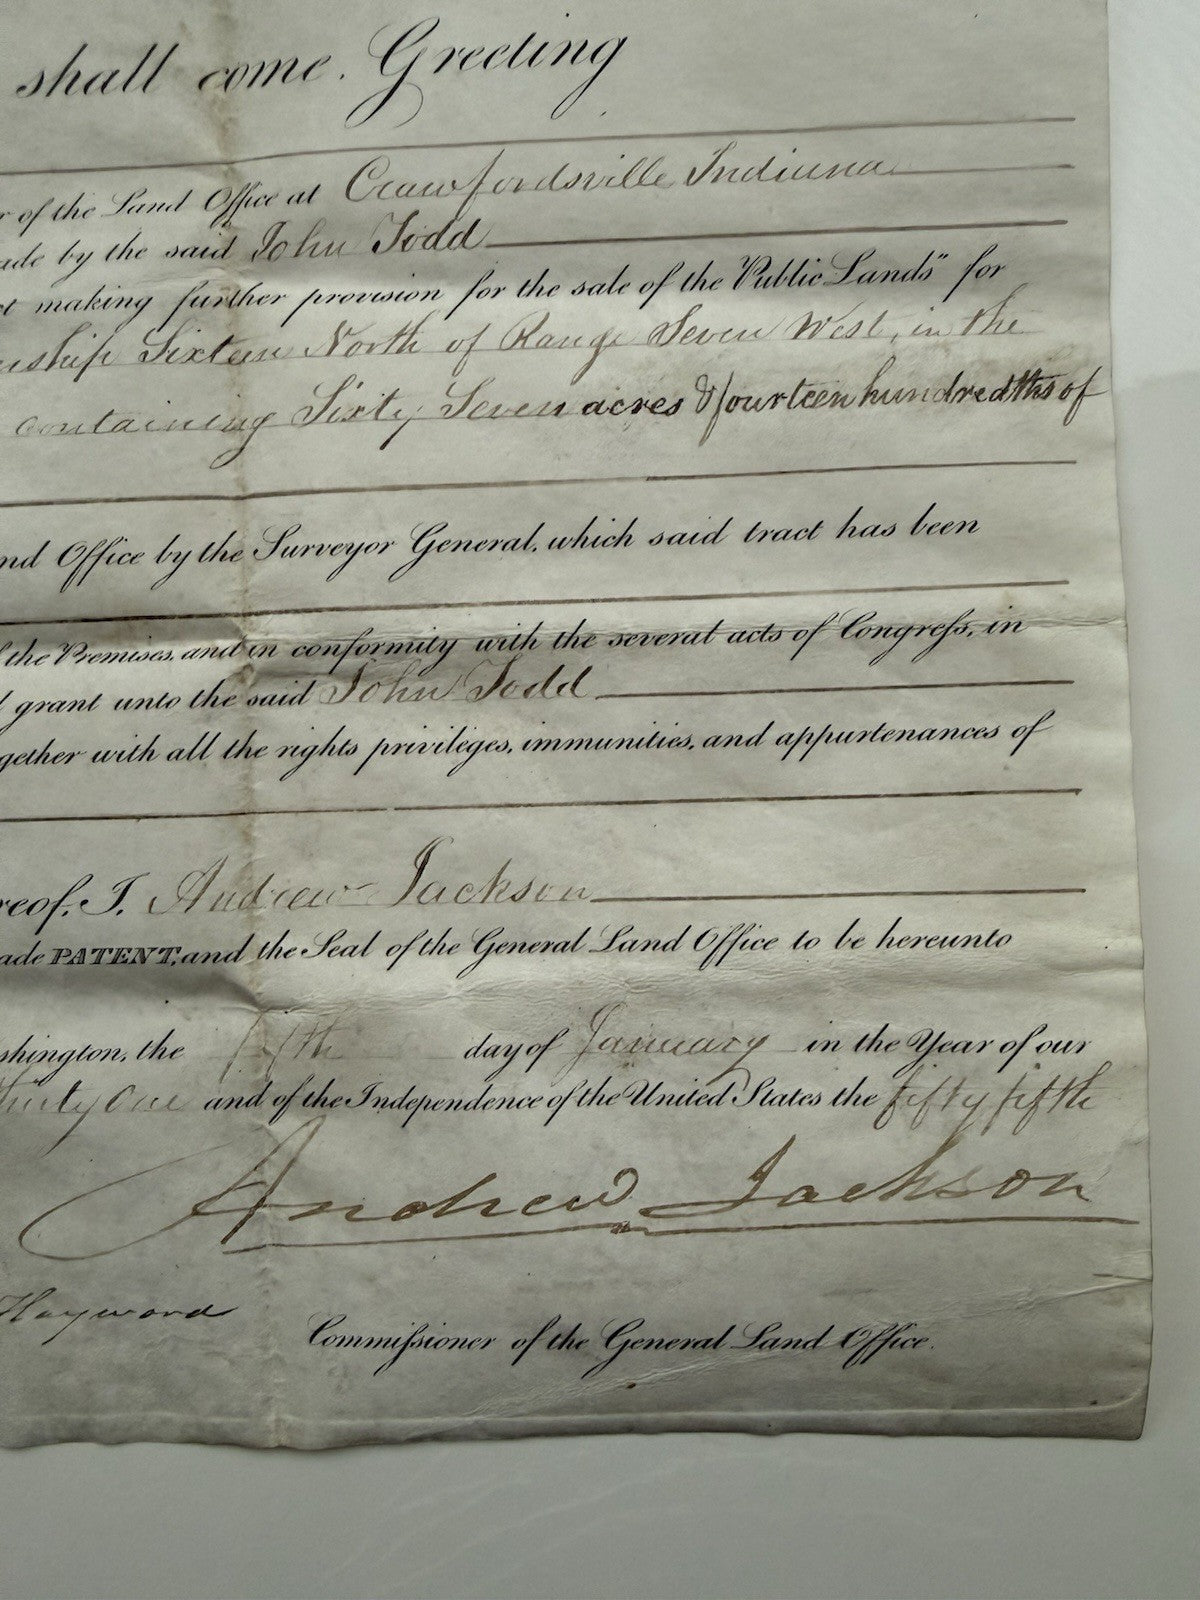 shall come, Greeting
of the Land Office at Crawfordsville Indiana
by the said John Todd
making further provision for the sale of the Public Lands" for
Sixteen North of Range Seven West, in the
containing Sixty Seven acres & fourteen hundredths of
Office by the Surveyor General, which said tract has been
the Premises, and in conformity with the several acts of Congreſs, in
grant unto the said John Todd
with all the rights privileges, immunities, and appurtenances of
I, Andrew Jackson
PATENT, and the Seal of the General Land Office to be hereunto
the fifth day of January in the Year of our
thirty one and of the Independence of the United States the fifty fifth
Andrew Jackson
Hayword
Commiſsioner of the General Land Office.